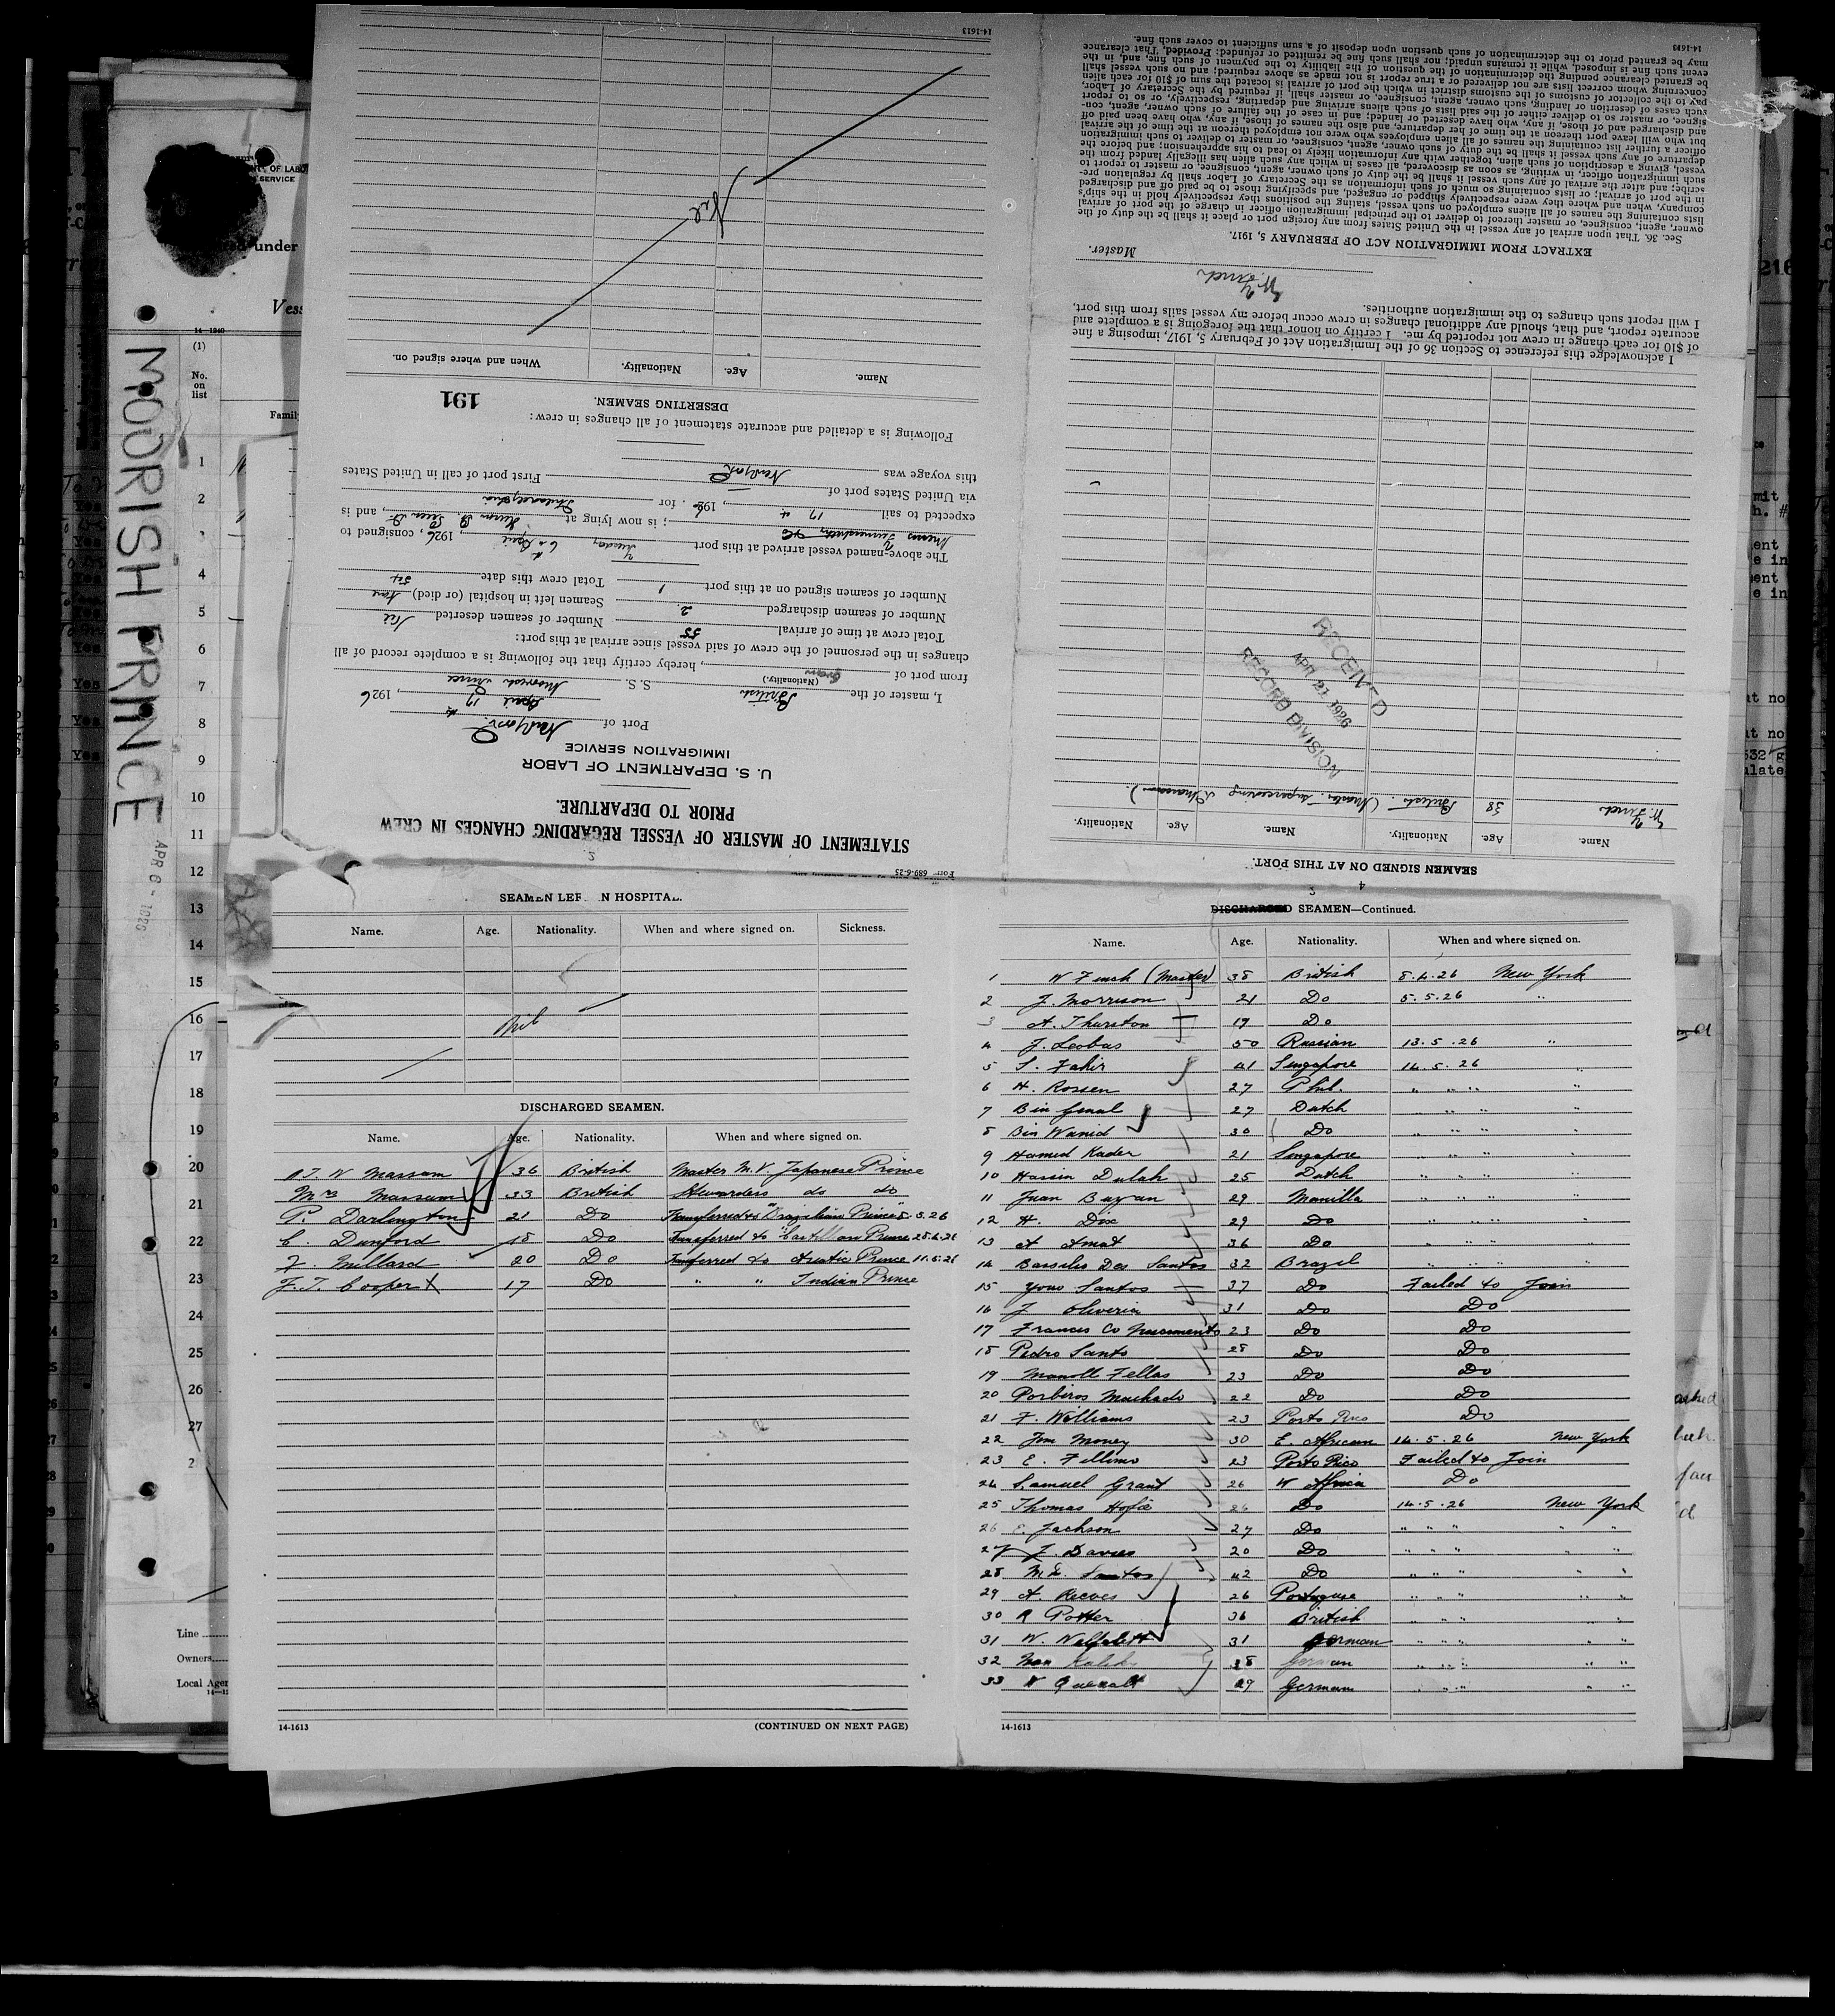 STATEMENT OF MASTER OF VESSEL REGARDING CHANGES IN CREW
PRIOR TO DEPARTURE.
U. S. DEPARTMENT OF LABOR
IMMIGRATION SERVICE
Port of New York
April 17, 1926
I, master of the British S.S. Moorish Prince
(Nationality.)
from port of, hereby certify that the following is a complete record of all
changes in the personnel of the crew of said vessel since arrival at this port:
Total crew at time of arrival 55 Number of seamen deserted Nil
Number of seamen discharged 2 Seamen left in hospital (or died)
Number of seamen signed on at this port 1 Total crew this date 54
The above-named vessel arrived at this port April, 1926, consigned to
; is now lying at, and is
expected to sail 17 4, 1926. for Philadelphia
via United States port of
this voyage was New York First port of call in United States
Following is a detailed and accurate statement of all changes in crew:
DESERTING SEAMEN.
191
Name. Age. Nationality. When and where signed on.
Nil
14-1613
SEAMEN SIGNED ON AT THIS PORT.
Name. Age. Nationality. Name. Age. Nationality.
W. Finch 38 British. (Master superseding
RECEIVED
APR 21 1926
RECORD DIVISION
I acknowledge this reference to Section 36 of the Immigration Act of February 5, 1917, imposing a fine
of $10 for each change in crew not reported by me. I certify on honor that the foregoing is a complete and
accurate report, and that, should any additional changes in crew occur before my vessel sails from this port,
I will report such changes to the immigration authorities.
W. Finch
Master.
EXTRACT FROM IMMIGRATION ACT OF FEBRUARY 5, 1917.
Sec. 36. That upon arrival of any vessel in the United States from any foreign port or place it shall be the duty of the
owner, agent, consignee, or master thereof to deliver to the principal immigration officer in charge of the port of arrival
lists containing the names of all aliens employed on such vessel, stating the positions they respectively hold in the ship's
company, when and where they were respectively shipped or engaged, and specifying those to be paid off and discharged
in the port of arrival; or lists containing so much of such information as the Secretary of Labor shall by regulation pre-
scribe; and after the arrival of any such vessel it shall be the duty of such owner, agent, consignee, or master to report to
such immigration officer, in writing, as soon as discovered, all cases in which any such alien has illegally landed from the
vessel, giving a description of such alien, together with any information likely to lead to his apprehension; and before the
departure of any such vessel it shall be the duty of such owner, agent, consignee, or master to deliver to such immigration
officer a further list containing the names of all alien employees who were not employed thereon at the time of the arrival
but who will leave port thereon at the time of her departure, and also the names of those, if any, who have been paid off
and discharged and of those, if any, who have deserted or landed; and in case of the failure of such owner, agent, con-
signee, or master so to deliver either of the said lists of such aliens arriving and departing, respectively, or so to report
such cases of desertion or landing, such owner, agent, consignee, or master shall, if required by the Secretary of Labor,
pay to the collector of customs of the customs district in which the port of arrival is located the sum of $10 for each alien
concerning whom correct lists are not delivered or a true report is not made as above required; and no such vessel shall
be granted clearance pending the determination of the question of the liability to the payment of such fine, and, in the
event such fine is imposed, while it remains unpaid; nor shall such fine be remitted or refunded: Provided, That clearance
may be granted prior to the determination of such question upon deposit of a sum sufficient to cover such fine.
MOORISH PRINCE
APR 6 - 1926
under
(1)
No.
on
list
1
2
3
4
5
6
7
8
9
10
11
12
13
14
15
16
17
18
19
20
21
22
23
24
25
26
27
Line
Owners
SEAMEN LEFT IN HOSPITAL.
Name. Age. Nationality. When and where signed on. Sickness.
Nil
DISCHARGED SEAMEN.
Name. Age. Nationality. When and where signed on.
J. W Marsam 36 British Master M.V. Japanese Prince
Mrs Marsam 33 British Stewardess do do
P. Darlington 21 Do Transferred to "Brazilian Prince" 5.5.26
C. Dunford 18 Do Transferred to "Castillian Prince
J. Millard 20 Do Transferred to Asiatic Prince 11.5.26
J. T. Cooper X 17 Do " " Indian Prince
14-1613 (CONTINUED ON NEXT PAGE)
DISCHARGED SEAMEN—Continued.
Name. Age. Nationality. When and where signed on.
1 W Finch (Master) 38 British 8.4.26 New York
2 J. Morrison 21 Do 5.5.26 "
3 A. Thurston 19 Do
4 J. Leobas 50 Russian 13.5.26 "
5 S. Fakir 41 Singapore 14.5.26 "
6 H. Rossen 27 Phil. " " " "
7 Bin Gmal 27 Dutch " " " "
8 Bin Wanid 30 Do " " " "
9 Hamid Kader 21 Singapore " " " "
10 Hassin Dulah 25 Dutch " " " "
11 Juan Buzan 29 Manilla " " " "
12 H. Dix 29 Do " " " "
13 A Amat 36 Do " " " "
14 Barselis Dos Santos 32 Brazil " " " "
15 Yono Santos 37 Do Failed to Join
16 J Oliveria 31 Do Do
17 Frances Co Nascimento 23 Do Do
18 Pedro Santo 28 Do Do
19 Manoll Fellas 23 Do Do
20 Porbiros Machado 22 Do Do
21 F. Williams 23 Porto Rico Do
22 Jim Money 30 E. African 14.5.26 New York
23 E. Fellimo 23 Porto Rico Failed to Join
24 Samuel Grant 26 W Africa Do
25 Thomas 26 Do 14.5.26 New York
26 E. Jackson 27 Do " " " " "
27 J. Davies 20 Do " " " " "
28 M. L. Santos 42 Do " " " " "
29 A. Reeves 26 Portuguese " " " " "
30 R Potter 36 British " " " " "
31 W. 31 German " " " " "
32 38 German " " " " "
33 29 German " " " " "
14-1613